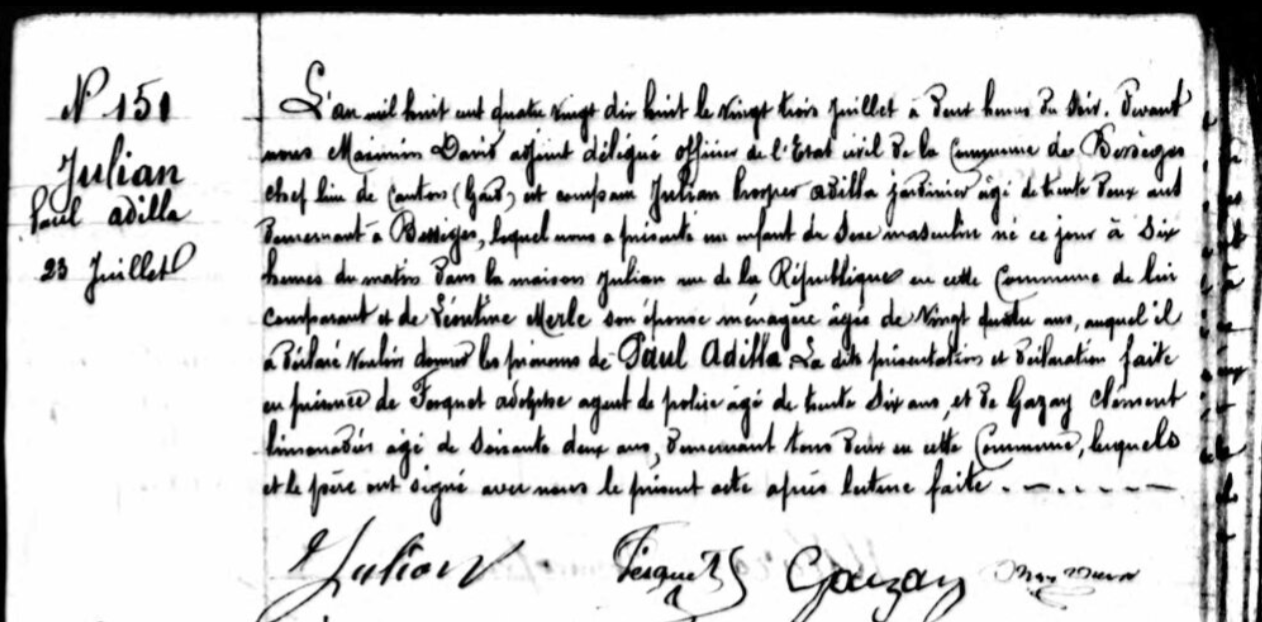 N° 151
Julian
Paul Adilla
23 Juillet
L'an mil huit cent quatre vingt dix huit le vingt trois Juillet à deux heures du soir. Devant
nous Maximin David adjoint délégué officier de l'Etat civil de la Commune de Bessèges
chef lieu de Canton (Gard) est comparu Julian Prosper Adilla jardinier âgé de trente deux ans
demeurant à Bessèges, lequel nous a présenté un enfant du sexe masculin né ce jour à six
heures du matin dans la maison Julian rue de la République en cette Commune de lui
comparant et de Léontine Merle son épouse ménagère âgée de vingt quatre ans, auquel il
a déclaré vouloir donner les prénoms de Paul Adilla. La dite présentation et déclaration faite
en présence de Fesquet Adolphe agent de police âgé de trente six ans, et de Gazay Clément
limonadier âgé de soixante deux ans, demeurant tous deux en cette Commune, lesquels
et le père ont signé avec nous le présent acte après lecture faite. — . . - - —
Julian Fesquet Gazay